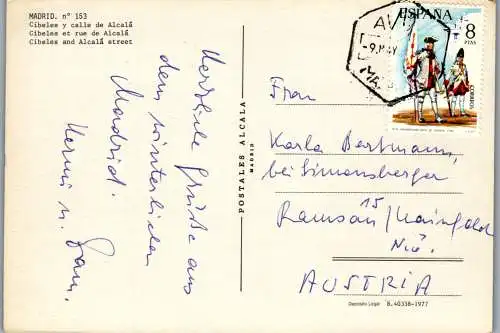 MADRID. nº 153
Cibeles y calle de Alcalá
Cibeles et rue de Alcalá
Cibeles and Alcalá street
Herzliche Grüße aus
dem winterlichen
Madrid.
Hermi u. Fam.
POSTALES ALCALA
MADRID
AVI
-9.MAY
MA
ESPAÑA
8
PTAS
CORREOS
Frau
Karla Bertmann,
bei Simonsberger
15
Ramsau/Hainfeld
Nö.
AUSTRIA
Depósito Legal B. 40338-1977